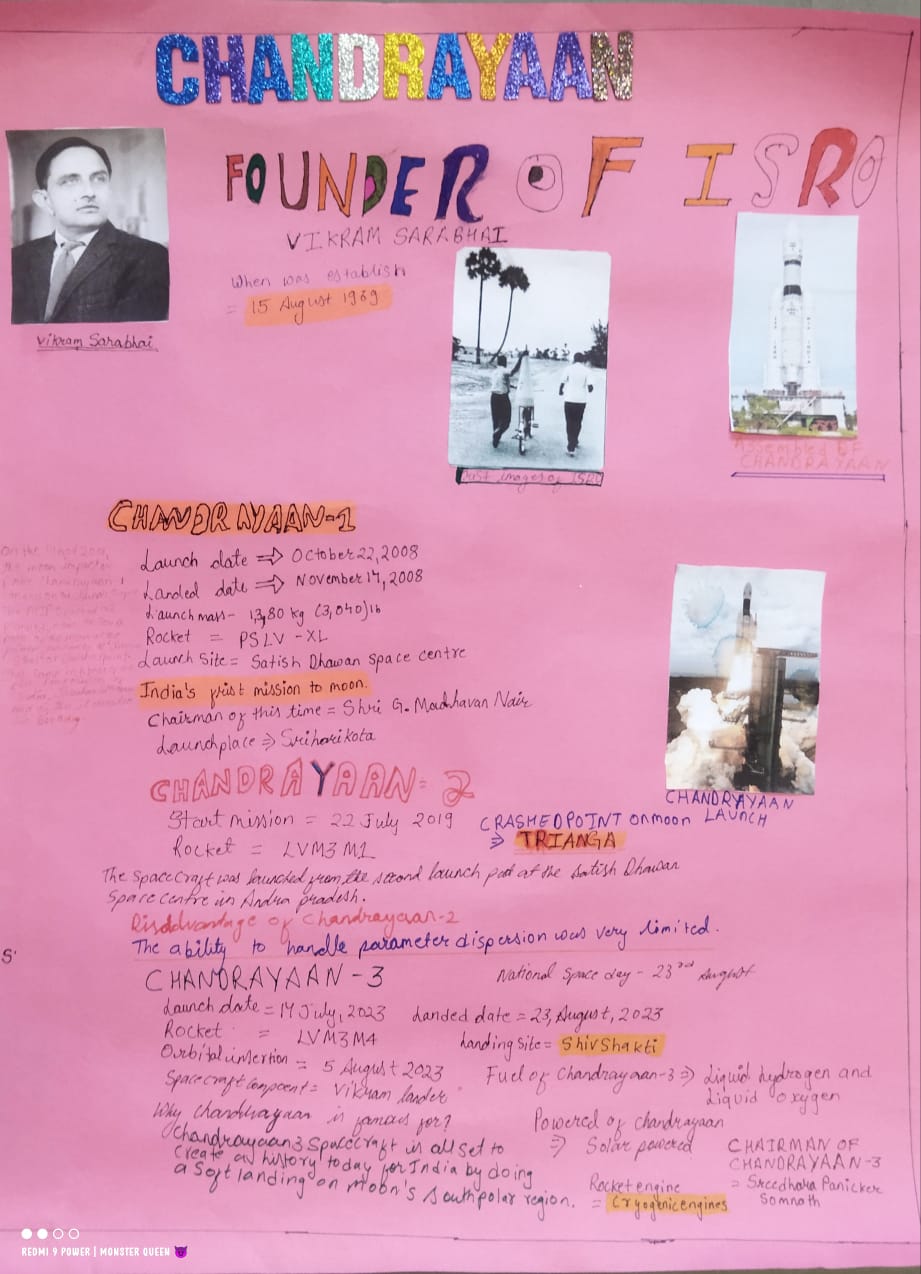 CHANDRAYAAN
FOUNDER OF ISRO
VIKRAM SARABHAI
When was establish
= 15 August 1969
Vikram Sarabhai
images of ISRO
Assembled OF
CHANDRAYAAN
CHANDRAYAAN-1
Launch date ⇒ October 22, 2008
Landed date ⇒ November 14, 2008
Launch mass - 13,80 kg (3,040) lb
Rocket = PSLV - XL
Launch Site = Satish Dhawan space centre
India's frist mission to moon.
Chairman of this time = Shri G. Madhavan Nair
Launchplace ⇒ Sriharikota
On the
the moon impacter
CHANDRAYAAN LAUNCH
CHANDRAYAAN = 2
Start mission = 22 July 2019
Rocket = LVM3 M1
CRASHED POINT on moon
⇒ TRIANGA
The SpaceCraft was launched from the second launch pad at the Satish Dhawan
Space centre in Andra pradesh.
Disadvantage of Chandrayaan-2
The ability to handle parameter dispersion was very limited.
S'
CHANDRAYAAN - 3
National Space day - 23rd August
Launch date = 14 July, 2023
Landed date = 23, August, 2023
Rocket = LVM3 M4
Landing Site = ShivShakti
Ourbital insertion = 5 August 2023
Spacecraft Compoent = Vikram lander
Fuel of Chandrayaan-3 ⇒ Liquid hydrogen and
Liquid oxygen
Why Chandrayaan is famous for?
Chandrayaan3 Spacecraft is all set to
create an history today for India by doing
a Soft landing on Moon's South polar region.
Powered of chandrayaan
⇒ Solar powered
Rocket engine
= Cryogenic engines
CHAIRMAN OF
CHANDRAYAAN-3
= Sreedhara Panicker
Somnath
REDMI 9 POWER | MONSTER QUEEN 😈